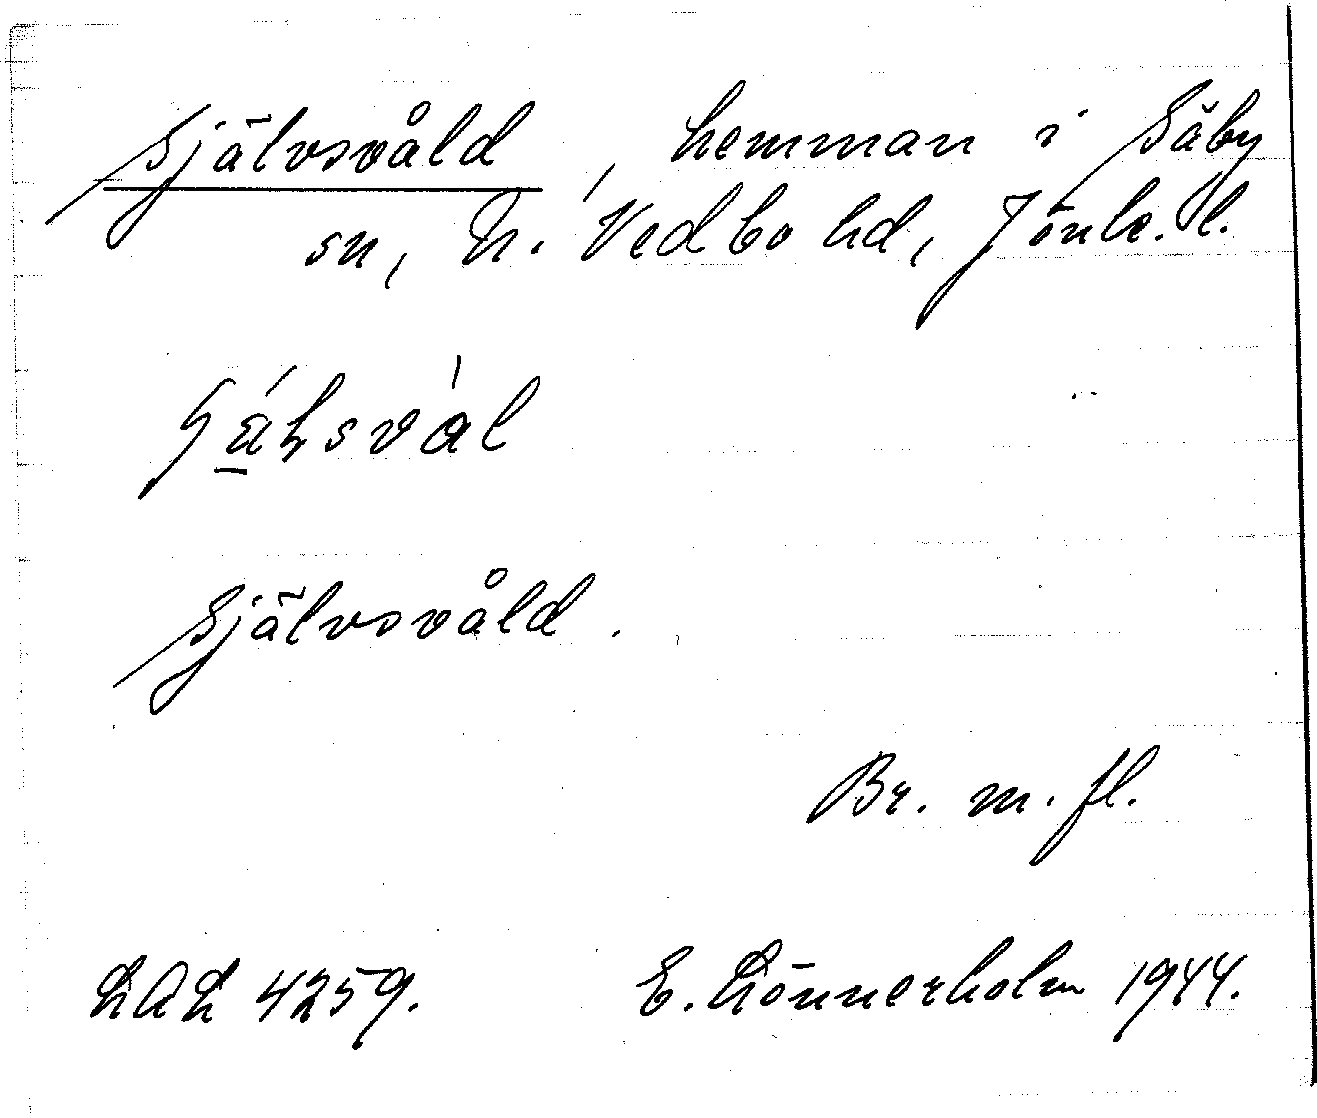 Självsvåld, hemman i Säby
sn, N. Vedbo hd, Jönk. l.
Självsvåld.
Br. m. fl.
LAL 4259. E. Lönnerholm 1944.